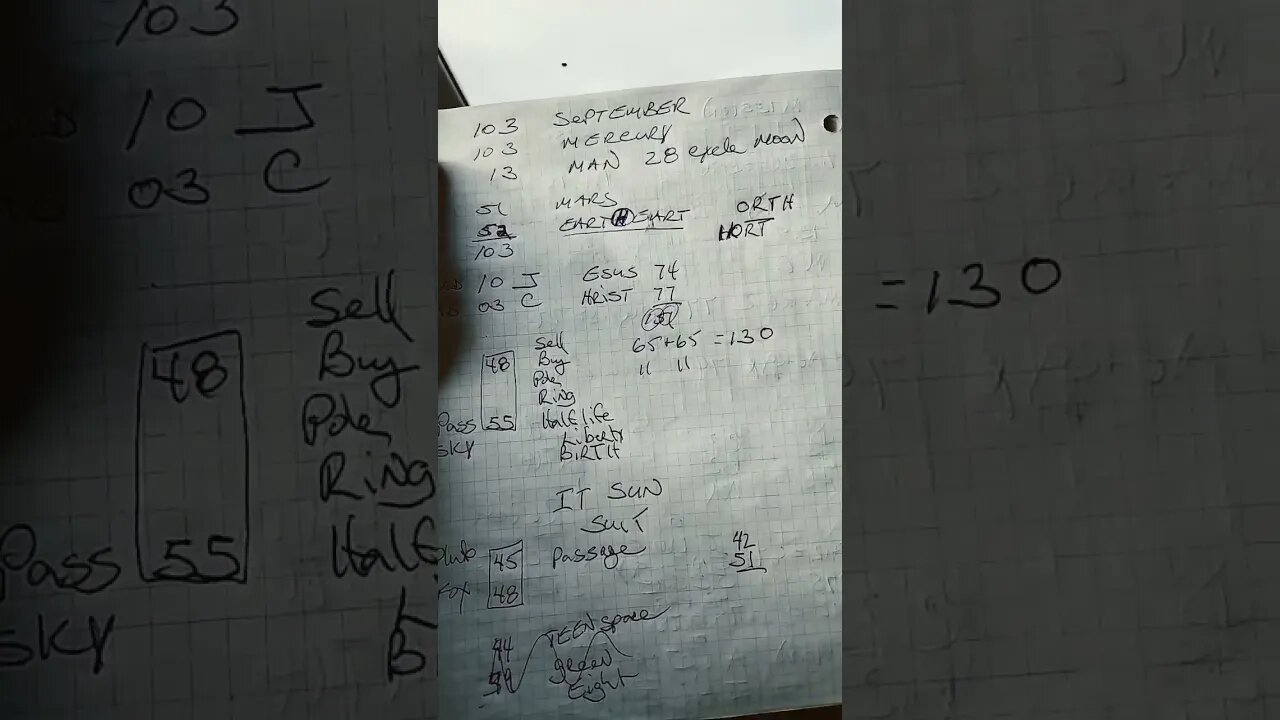 103 SEPTEMBER
103 MERCURY
13 MAN 28 cycle MOON
51 MARS
52 EARTHEART ORTH
103 HORT
10 J ESUS 74
03 C HRIST 77
151
Sell 65+65 =130
48 Buy 11 11
Pole
Ring
Pass 55 Half life
SKY Liberty
BIRTH
IT SUN
SUIT
45 Passage 42
Fox 48 51
44 TEEN space
green
Eight